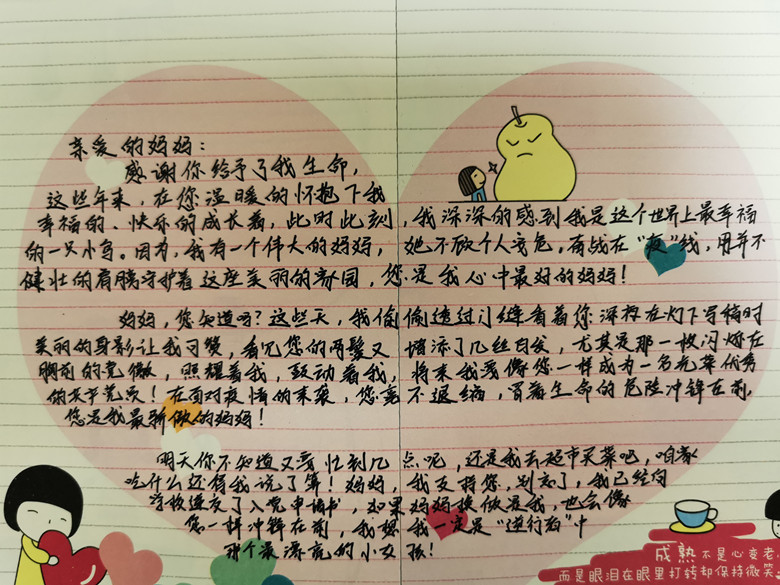 亲爱的妈妈：
感谢你给予了我生命，
这些年来，在您温暖的怀抱下我
幸福的、快乐的成长着，此时此刻，我深深的感到我是这个世界上最幸福
的一只小鸟。因为，我有一个伟大的妈妈，她不顾个人安危，奋战在"夜"线，用并不
健壮的肩膀守护着这座美丽的家园，您是我心中最好的妈妈！
妈妈，您知道吗？这些天，我偷偷透过门缝看着您深夜在灯下写稿时
美丽的身影让我可赞，看见您的两鬓又增添了几丝白发，尤其是那一枚闪烁在
胸前的党徽，照耀着我，鼓动着我，将来我要像您一样成为一名光荣优秀
的共产党员！在面对疫情的来袭，您毫不退缩，冒着生命的危险冲锋在前，
您是我最骄傲的妈妈！
明天你不知道又要忙到几点呢，还是我去超市买菜吧，咱家
吃什么还得我说了算！妈妈，我支持您，别忘了，我已经向
学校递交了入党申请书，如果妈妈换做是我，也会像
您一样冲锋在前，我想我一定是"逆行者"中
那个最漂亮的小女孩！
成熟不是心变老
而是眼泪在眼里打转却保持微笑